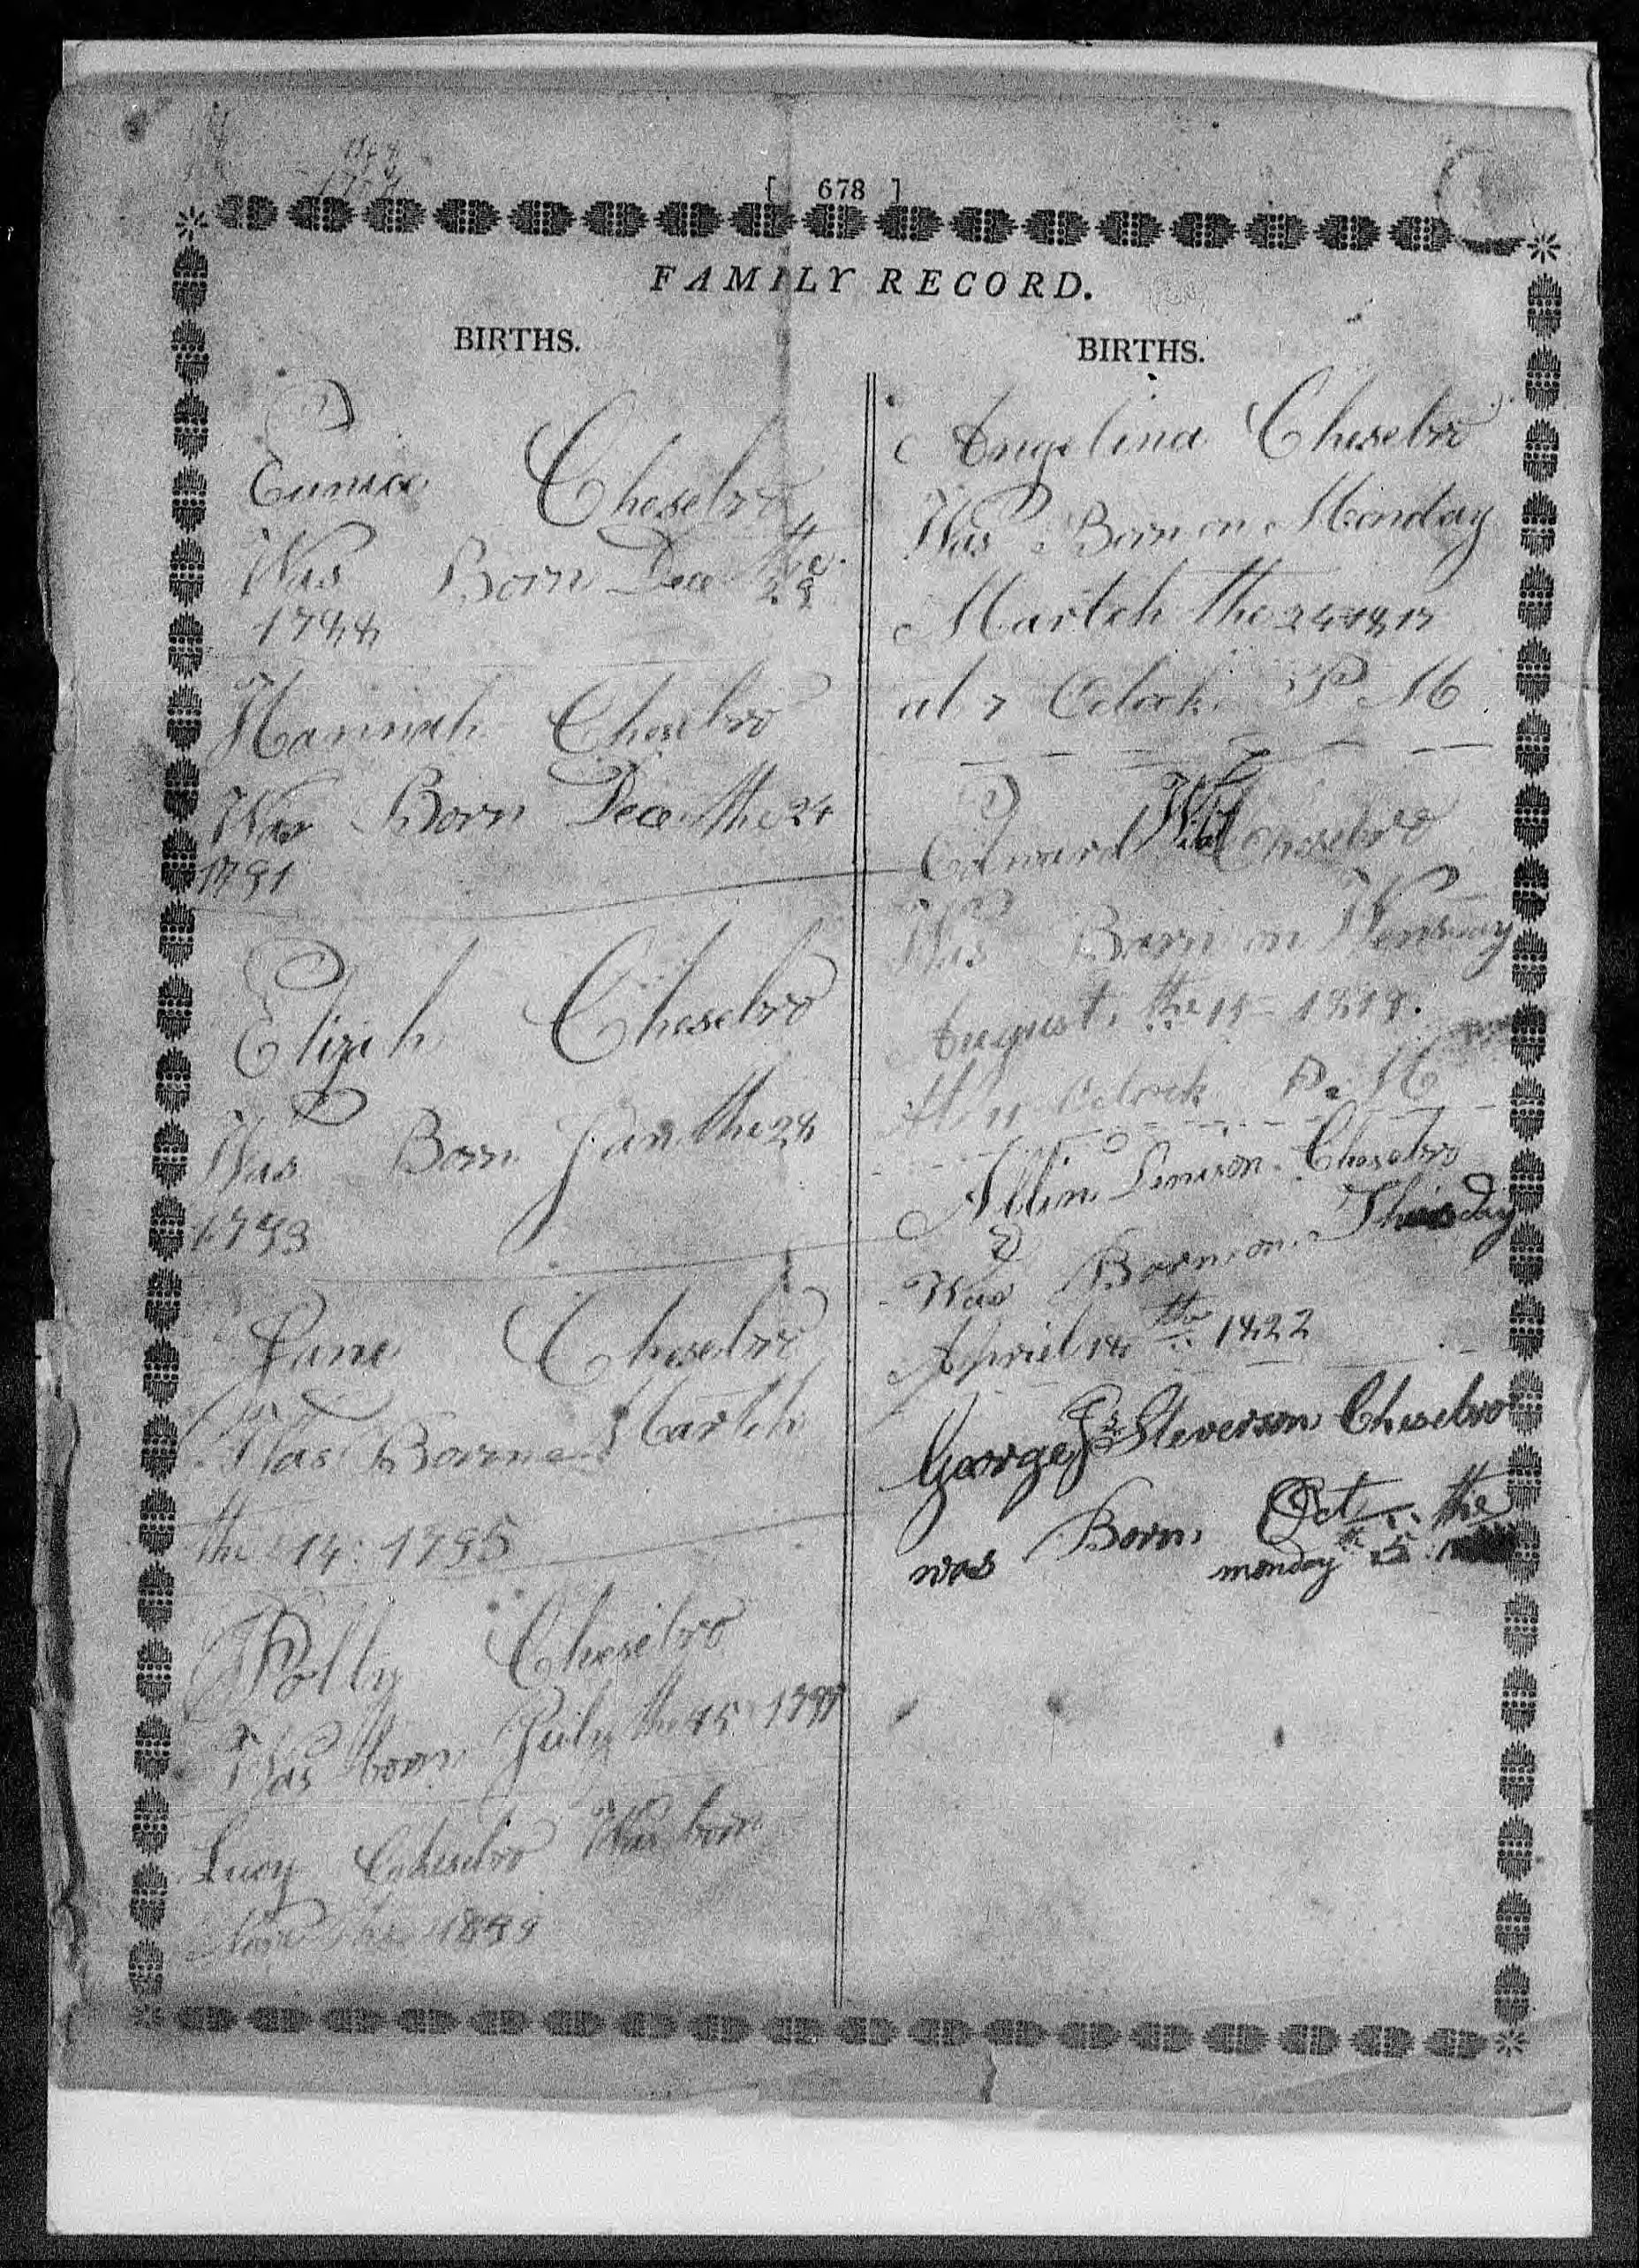 [ 678 ]
FAMILY RECORD.
BIRTHS.
Eunice Chesebro
Was Born Dec the 29
1788
Hannah Chesebro
Was Born Dec the 24
1791
Elizah Chesebro
Was Born Jan the 28
1793
Chesebro
Was Borne Martch
the 14: 1795
Polly Chesebro
Was born July the 15 1797
Lucy Chesebro Was born
the
BIRTHS.
Angelina Chesebro
Was Born on Monday
Martch the 24 1817
at 7 Oclock P M
Edward Chesebro
Was Born on
August the 1818.
At 11 Oclock P. M
Allin Denison Chesebro
Was Born on
April 18 th 1822
George Steverson Chesebro
was Born Oct the
monday